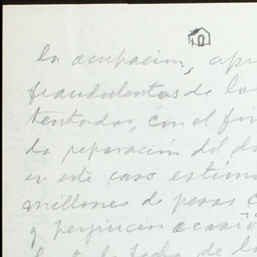 la ocupación, apr
fraudulentas de los
tentados, con el fin
da reparación del d
en este caso estim
millones de pesos
y perjuicios ocasio